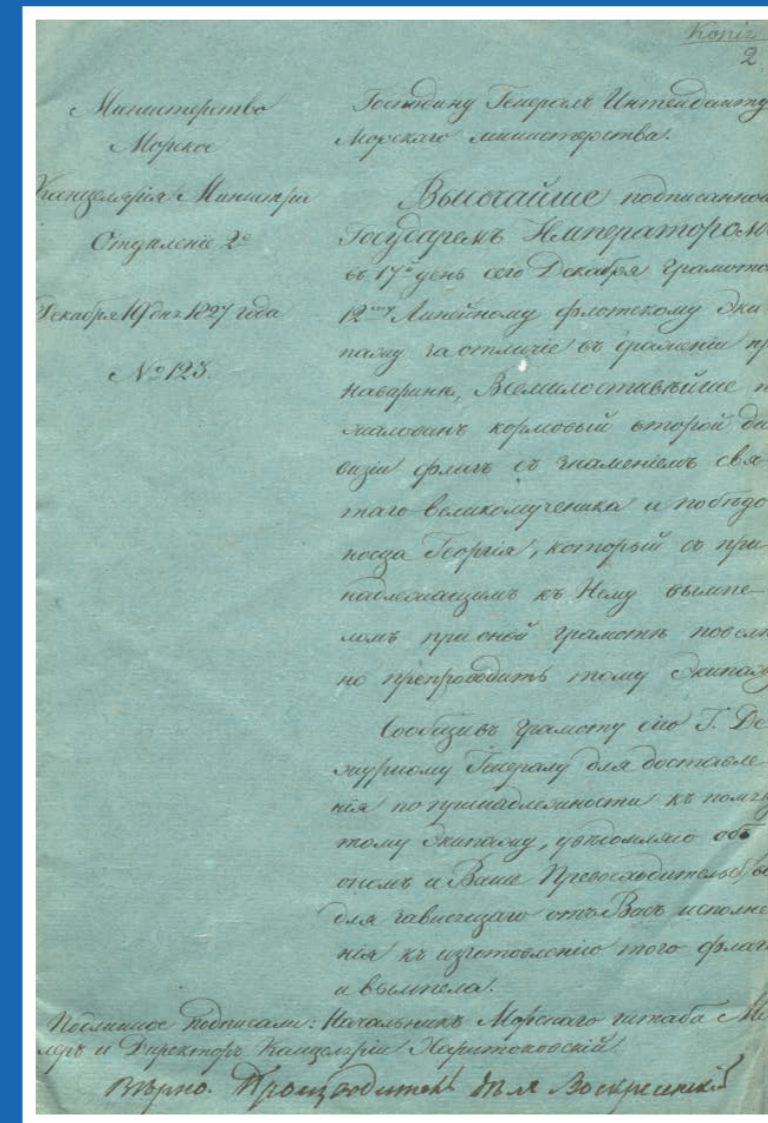 Копія
2
Министерство
Морское
Канцелярія Министра
Отдѣленіе 2е
Декабря 19 дня 1827 года
№ 123.
Господину Генералъ Интенданту
Морскаго министерства.
Высочайше подписанной
Государемъ Императоромъ
въ 17й день сего Декабря грамото
12му Линейному флотскому Эки-
пажу за отличіе въ сраженіи пр
Наваринѣ, Всемилостивѣйше п
жалованъ кормовый второй ди
визіи флагъ съ знаменіемъ свя-
таго великомученика и побѣдо
носца Георгія, который съ при-
надлежащимъ къ Нему вымпе-
ломъ при оной грамотѣ повелѣ
но препроводить тому Экипажу
Сообщивъ грамоту сію Г. Де
журному Генералу для доставле-
нія по принадлежности къ помяну
тому Экипажу, увѣдомляю объ
ономъ и Ваше Превосходительство
для зависящаго отъ Васъ исполне
нія къ изготовленію того флага
и вымпела.
Подлинное подписали: Начальникъ Морскаго штаба Мол
леръ и Директоръ Канцеляріи Харитоновскій
Вѣрно. Производитель дѣлъ Воскресенскій